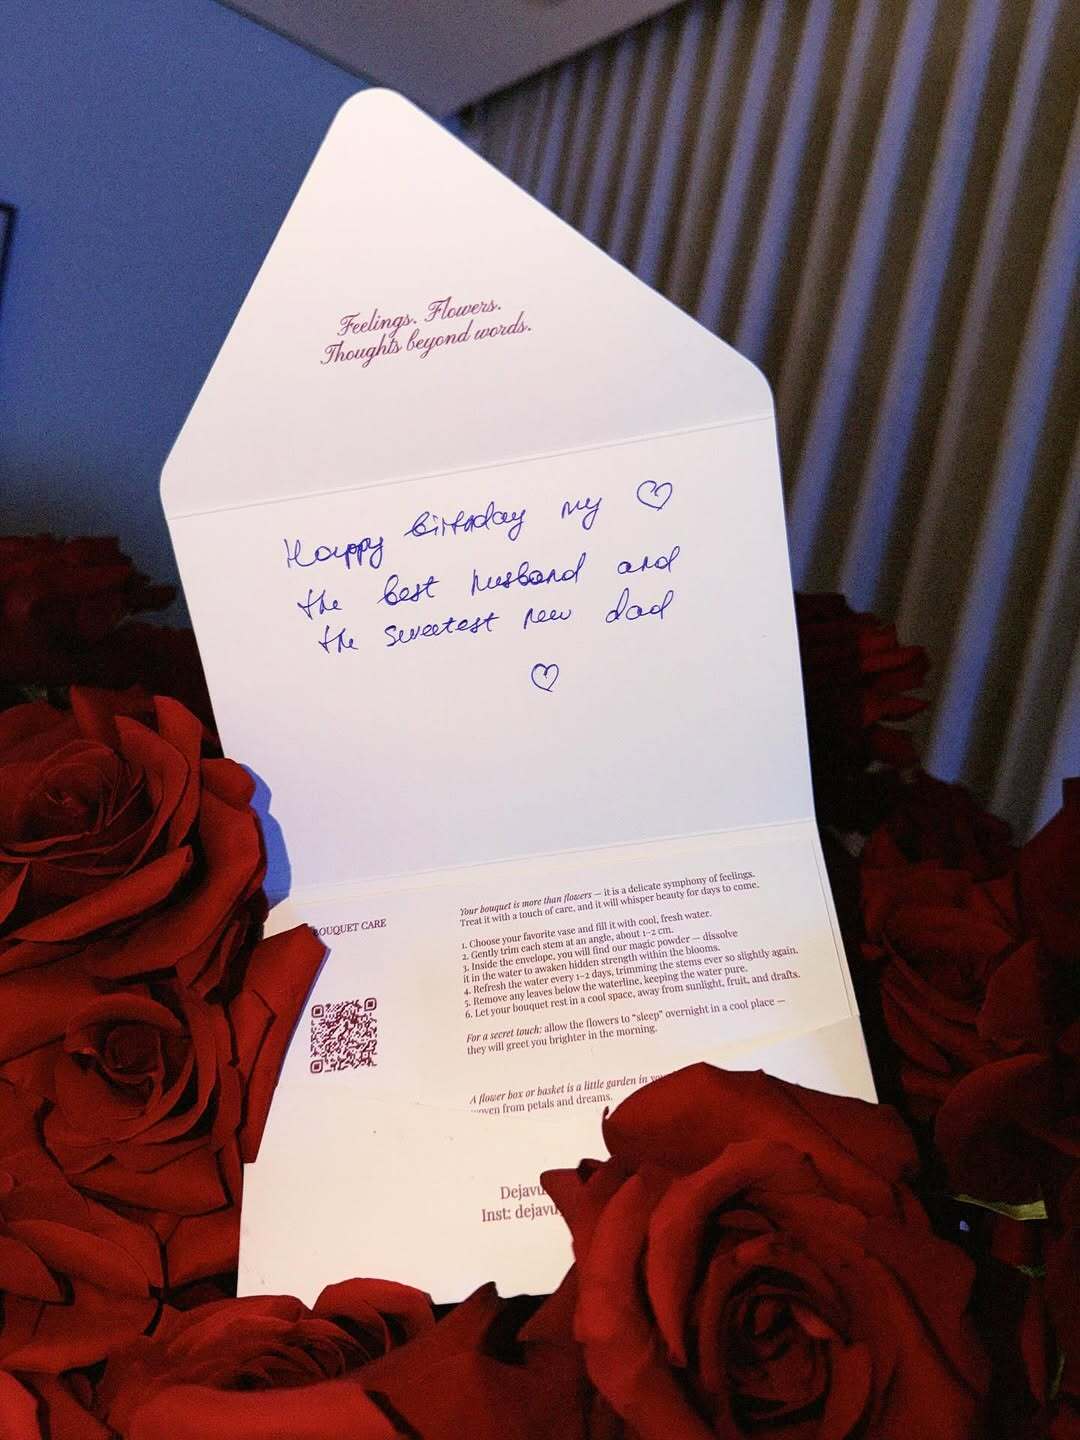 Feelings. Flowers.
Thoughts beyond words.
Happy birthday my ♡
the best husband and
the sweetest new dad
♡
BOUQUET CARE
Your bouquet is more than flowers — it is a delicate symphony of feelings.
Treat it with a touch of care, and it will whisper beauty for days to come.
1. Choose your favorite vase and fill it with cool, fresh water.
2. Gently trim each stem at an angle, about 1–2 cm.
3. Inside the envelope, you will find our magic powder — dissolve
it in the water to awaken hidden strength within the blooms.
4. Refresh the water every 1–2 days, trimming the stems ever so slightly again.
5. Remove any leaves below the waterline, keeping the water pure.
6. Let your bouquet rest in a cool space, away from sunlight, fruit, and drafts.
For a secret touch: allow the flowers to “sleep” overnight in a cool place —
they will greet you brighter in the morning.
A flower box or basket is a little garden in
from petals and dreams.
Inst: